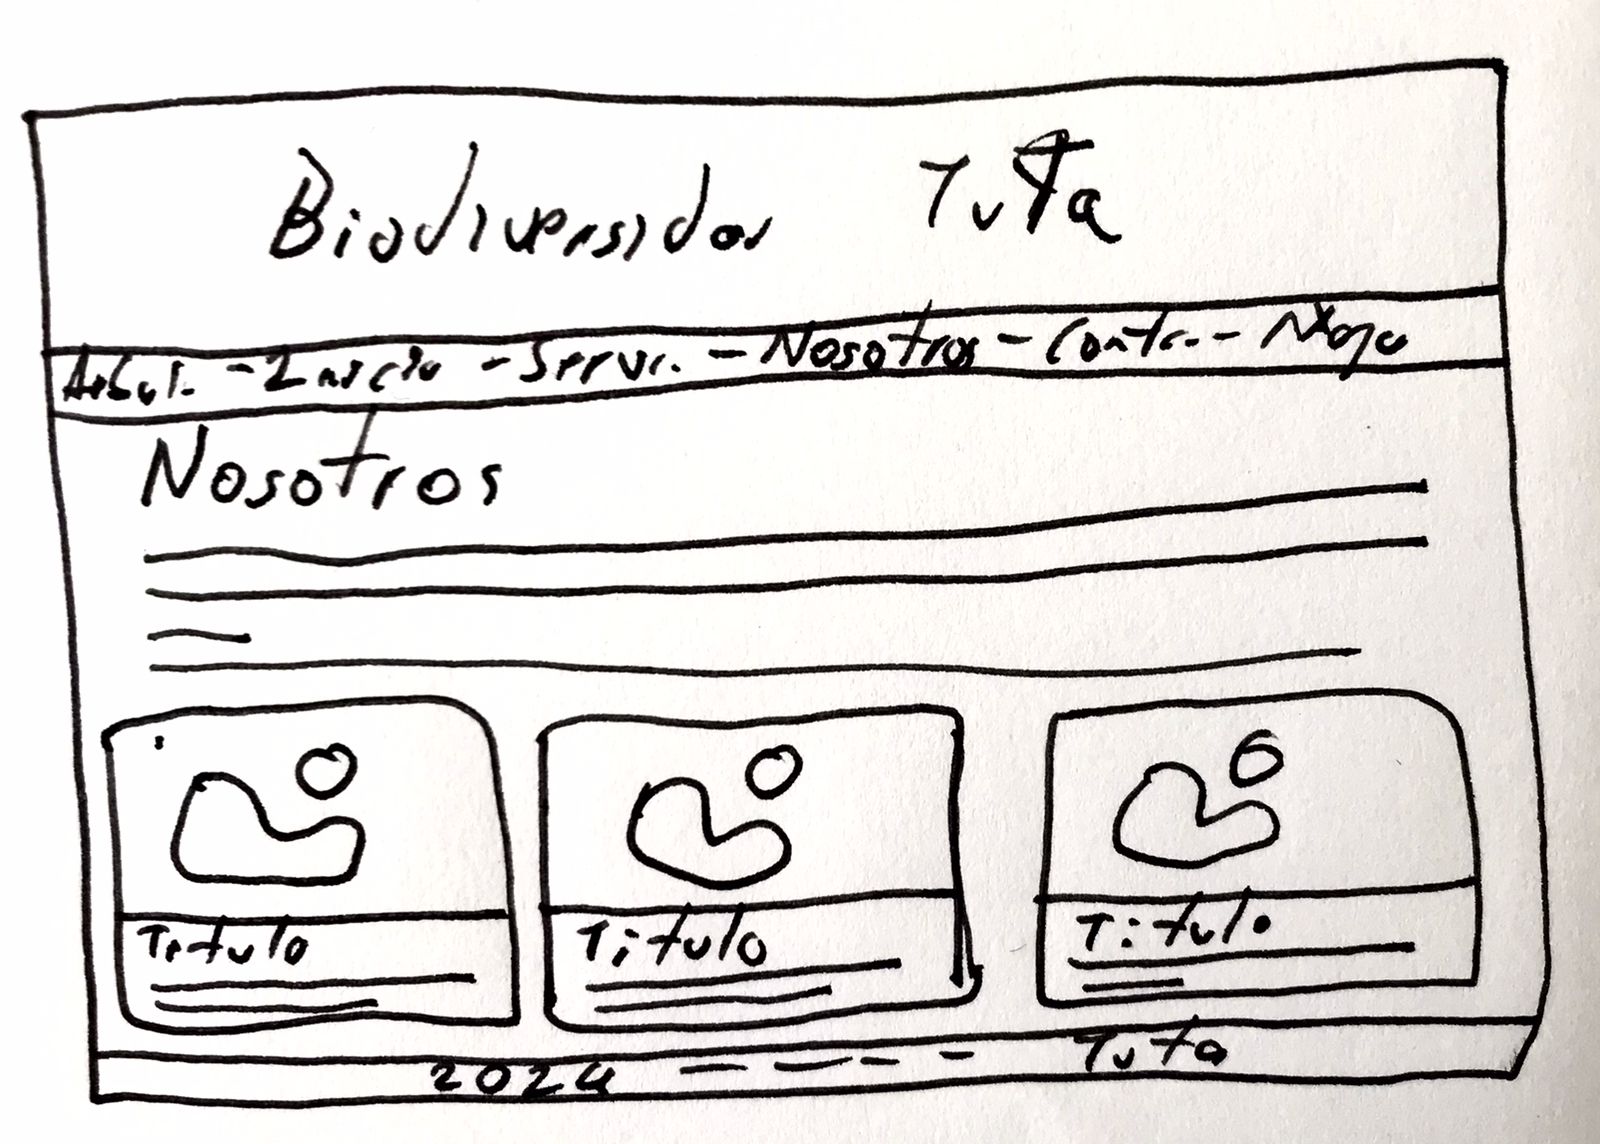 Biodiversidad Tuta
Inicio - Servi. - Nosotros - Contc. -
Nosotros
Titulo
Titulo
Titulo
2024 - - - - Tuta